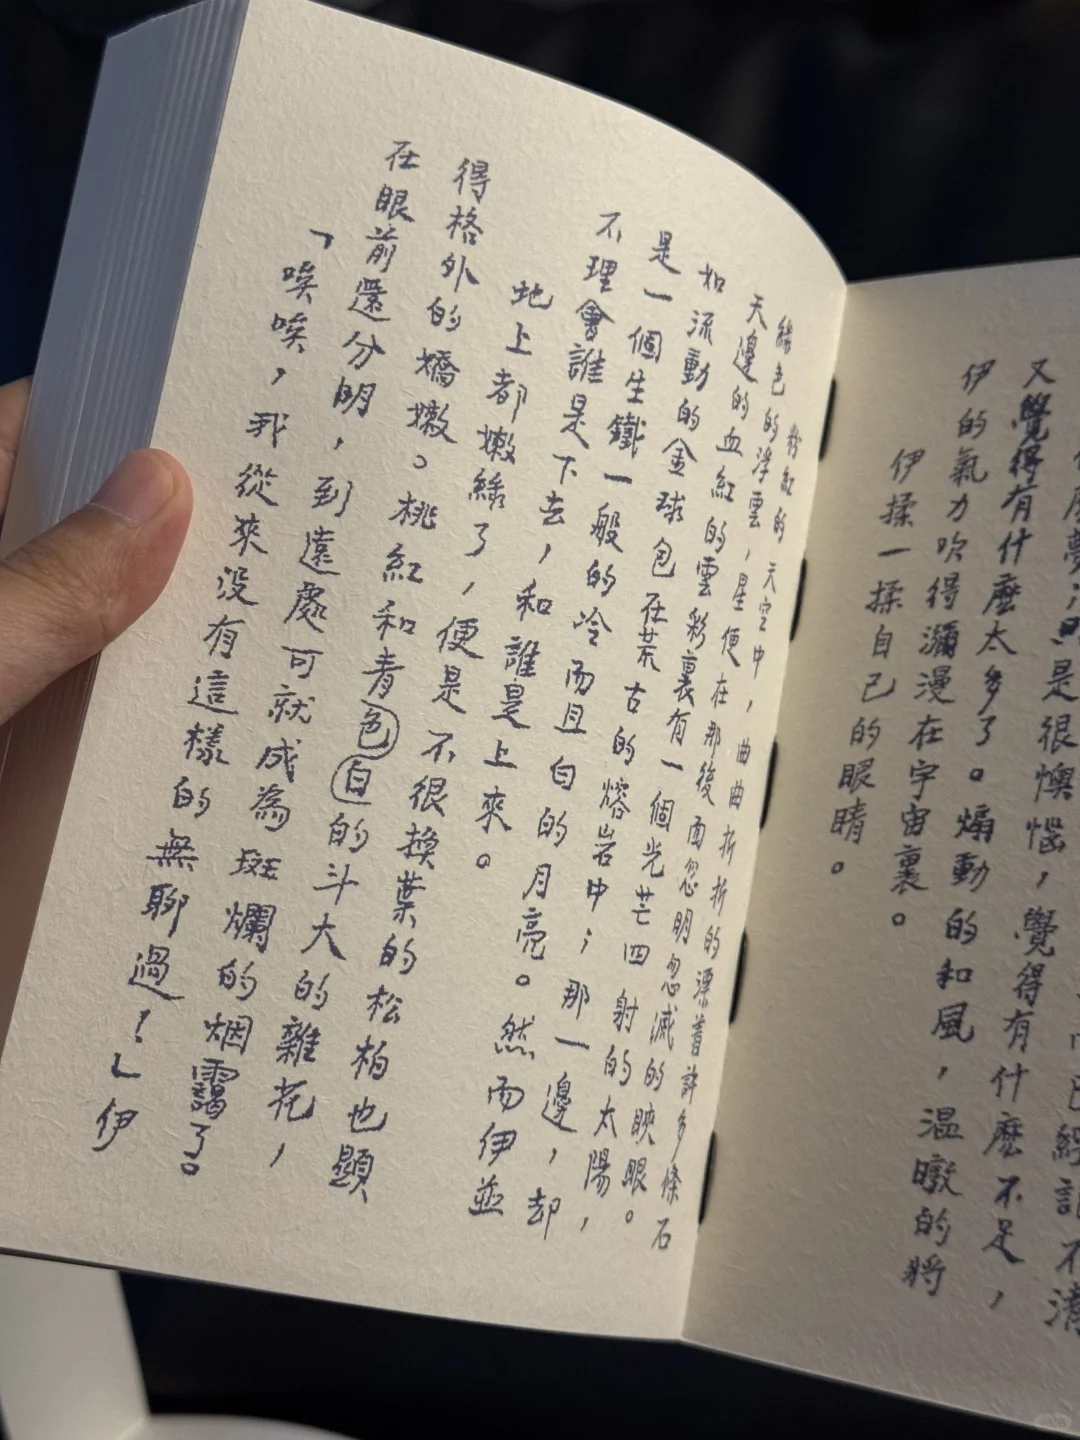 而已經記不清
麼夢是很懊惱，覺得有什麼不足，
又覺得有什麼太多了。煽動的和風，温暾的將
伊的氣力吹得瀰漫在宇宙裏。
伊揉一揉自己的眼睛。
粉紅的天空中，曲曲折折的漂着許多條石
綠色的浮雲，星便在那後面忽明忽滅的映眼。
天邊的血紅的雲彩裏有一個光芒四射的太陽，
如流動的金球包在荒古的熔岩中；那一邊，却
是一個生鐵一般的冷而且白的月亮。然而伊並
不理會誰是下去，和誰是上來。
地上都嫩綠了，便是不很換葉的松柏也顯
得格外的嬌嫩。桃紅和青色白的斗大的雜花，
在眼前還分明，到遠處可就成為斑爛的烟靄了。
「唉唉，我從來没有這樣的無聊過！」伊